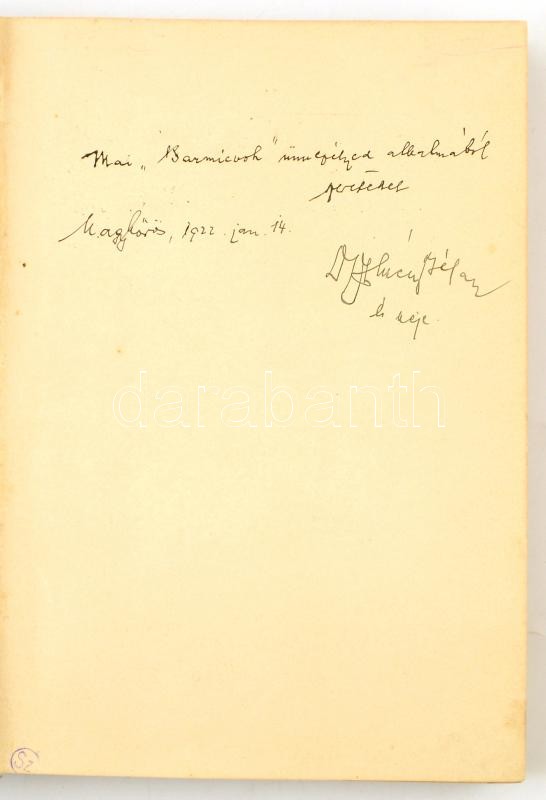 Mai „Barmicvoh" ünnepélyed alkalmából
szeretettel
Nagykőrös, 1922. jan. 14.
Dr
Béla
és neje.
darabanth